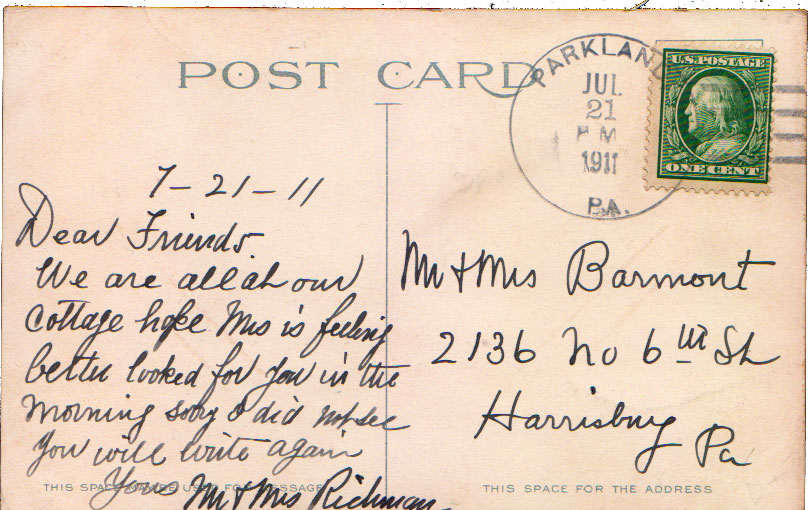 POST CARD
PARKLAND
JUL
21
P M
1911
PA.
U.S. POSTAGE
ONE CENT
7-21-11
Dear Friends
We are all at our
Cottage hope Mrs is feeling
better looked for you in the
morning sorry I did not see
you will write again
Yours Mr & Mrs Richman
THIS SPACE MAY BE USED FOR MESSAGE
Mr & Mrs Barmont
2136 No 6th St
Harrisburg
Pa
THIS SPACE FOR THE ADDRESS